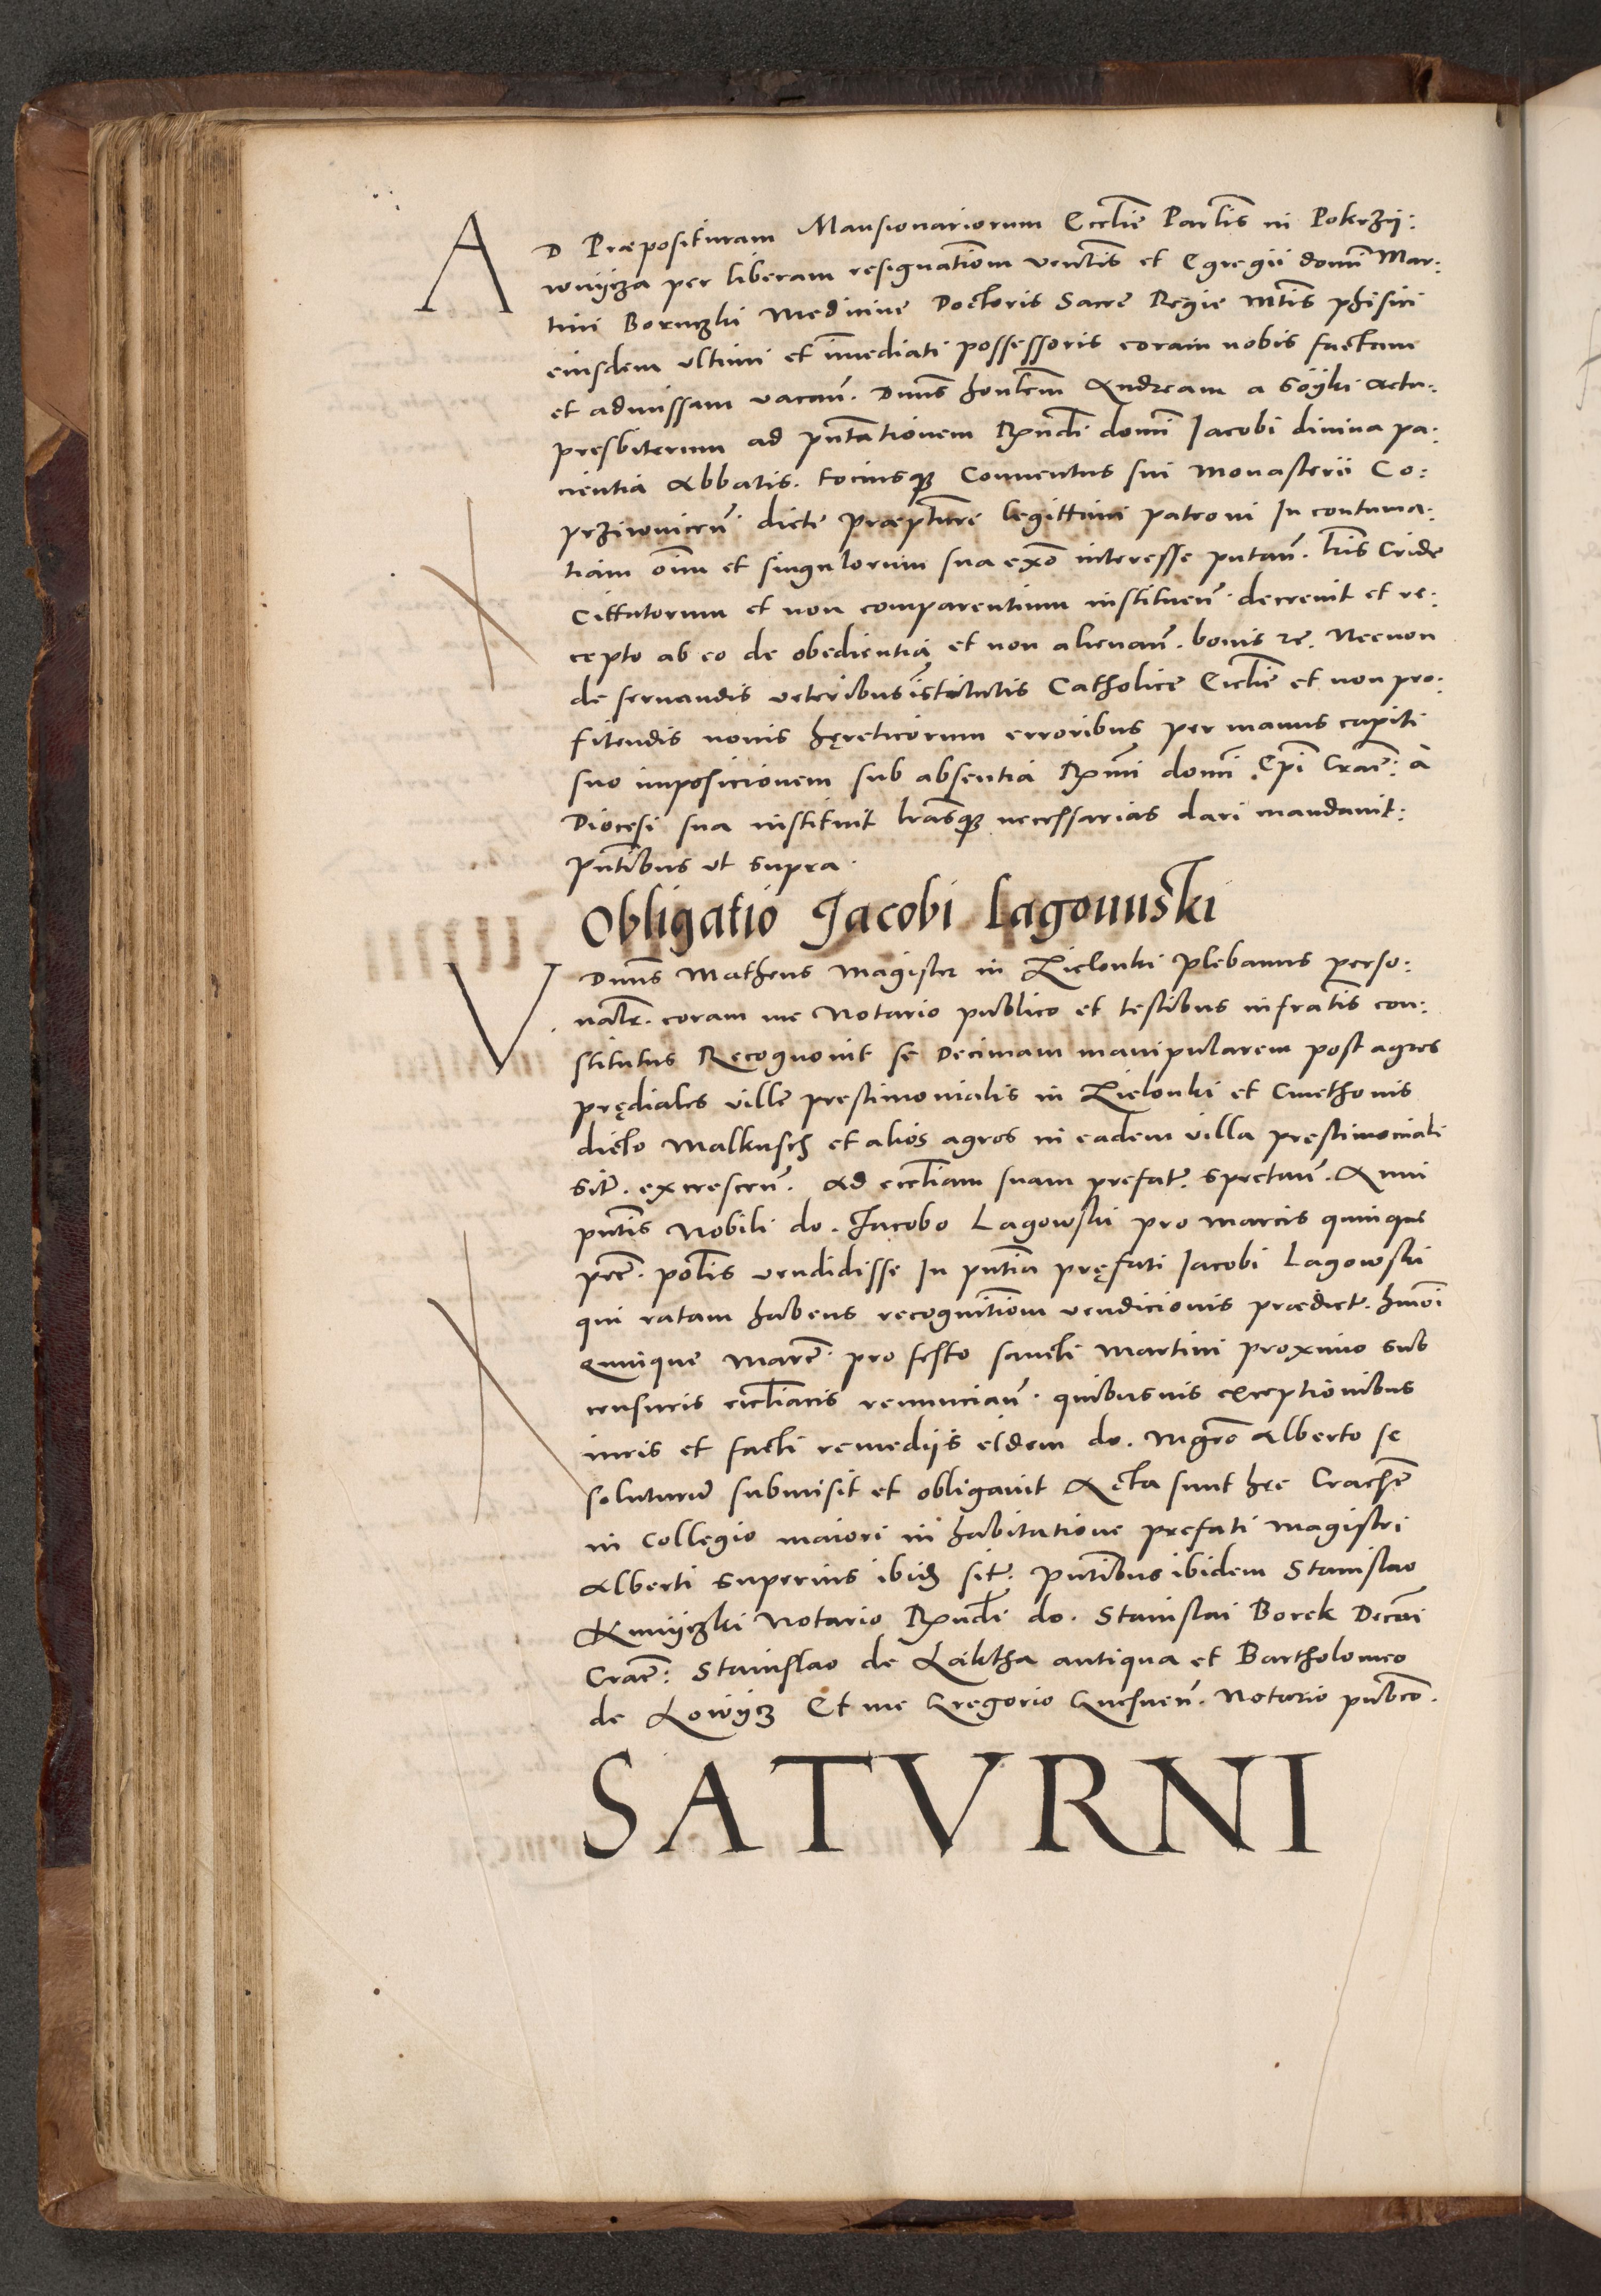 AD Præposituram Mansionariorum Eccl̄ie Par̄lis in Pokrzÿ:
wnÿcza per liberam resignatio̅m ven̅lis et Egregii domi̅ Mar:
tini Bornczki Medicine Doctoris Sacre Regie M̅tis phisici
eiusdem vltimi et i̅mediati possessoris coram nobis factam
et admissam vacan̅. Dnu̅s hon̅lem Andream a Soÿki actu:
presbiterum ad pn̅tationem Rn̅di domi̅ Iacobi divina pa:
cientia Abbatis. tociusq3 Conuentus sui Monasterii Co:
przivnicen̅. dicte præpt̅ure legittimi patroni In contuma:
tiam om̅iu et singulorum sua exo̅ interesse putan̅. l̅ris Cride
Cittatorum et non comparentium instituen̅. decrevit et re:
cepto ab eo de obedientia et non alienan̅. bonis re̅. Necnon
de seruandis veteribus i̅stitutis Catholice Eccl̅ie et non pro:
fitendis nouis hęreticorum erroribus per manus capiti
suo imposicionem sub absentia Rmi̅ domi̅ Epi̅ Crac̅: à
Diocesi sua instituit l̅rasq3 necessarias dari mandauit:
Pn̅tibus vt supra.
Obligatio Jacobi Lagouuski
V Dnu̅s Matheus Magister in Zielonki Plebanus perso:
nalr̅. coram me Notario publico et testibus infrat̅is con:
stitutus Recognouit se Decimam manipularem post agros
prędiales ville prestimonialis in Zielonki et Cmethonis
dicto Malkusch et alios agros in eadem villa prestimoniali
sit̅. excrescen̅. ad eccl̅iam suam prefat̅. spectan̅. Anni
pn̅tis Nobili do. Jacobo Lagowski pro marcis quinque
pec̅. pol̅is vendidisse In pn̅tia pręfati Iacobi Lagowski
qui ratam habens recognitio̅m vendicionis prædict̅. hmo̅i
Quinque Marc̅. pro festo sancti Martini proximo sub
censuris eccl̅iacis renuncian̅. quibusuis exceptionibus
iuris et facti remediis eidem do. Mgro̅ Alberto se
soluturu̅ submisit et obligauit Acta sunt hec Crac̅
in Collegio maiori in habitatione prefati Magistri
Alberti superius ibid3 sit̅. Pn̅tibus ibidem Stanislao
Knÿczki Notario Rn̅di do. Stanislai Borek Decani
Crac̅: Stanislao de Laktha antiqua et Bartholomeo
de Lowÿcz Et me Gregorio Gnesnen̅. Notario pub̅co.
SATVRNI